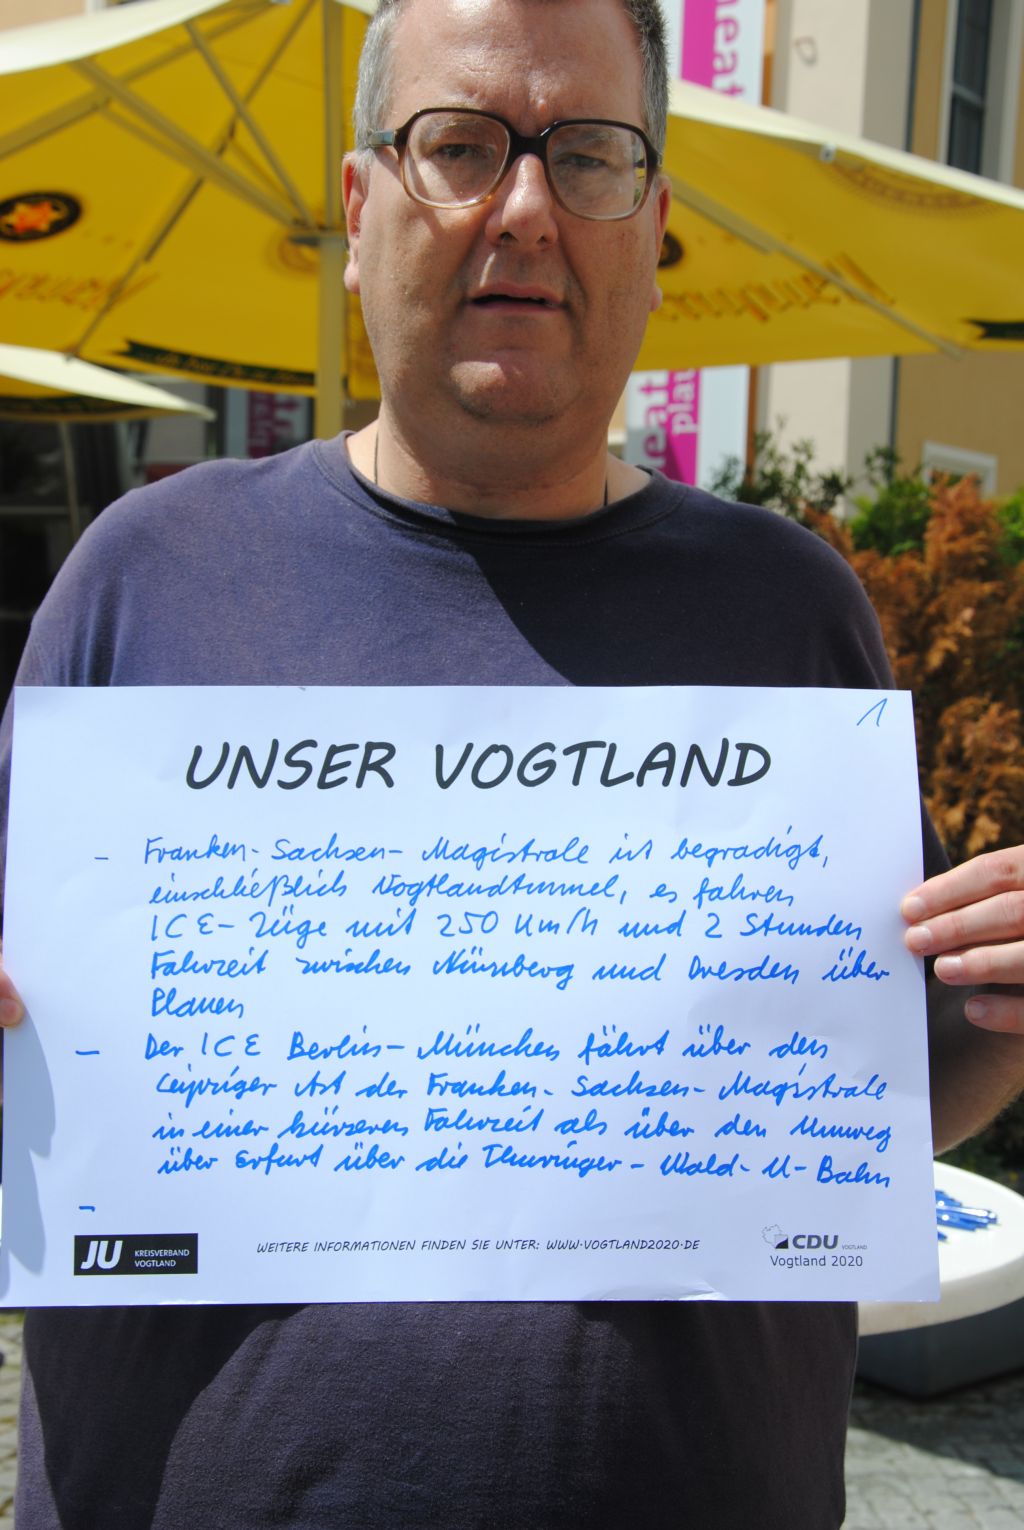 1
UNSER VOGTLAND
- Franken-Sachsen-Magistrale ist begradigt,
einschließlich Vogtlandtunnel, es fahren
ICE-Züge mit 250 km/h und 2 Stunden
Fahrzeit zwischen Nürnberg und Dresden über
Plauen
- Der ICE Berlin-München fährt über den
Leipziger Ast der Franken-Sachsen-Magistrale
in einer kürzeren Fahrzeit als über den Umweg
über Erfurt über die Thüringer-Wald-U-Bahn
-
JU KREISVERBAND
VOGTLAND
WEITERE INFORMATIONEN FINDEN SIE UNTER: WWW.VOGTLAND2020.DE
CDU VOGTLAND
Vogtland 2020